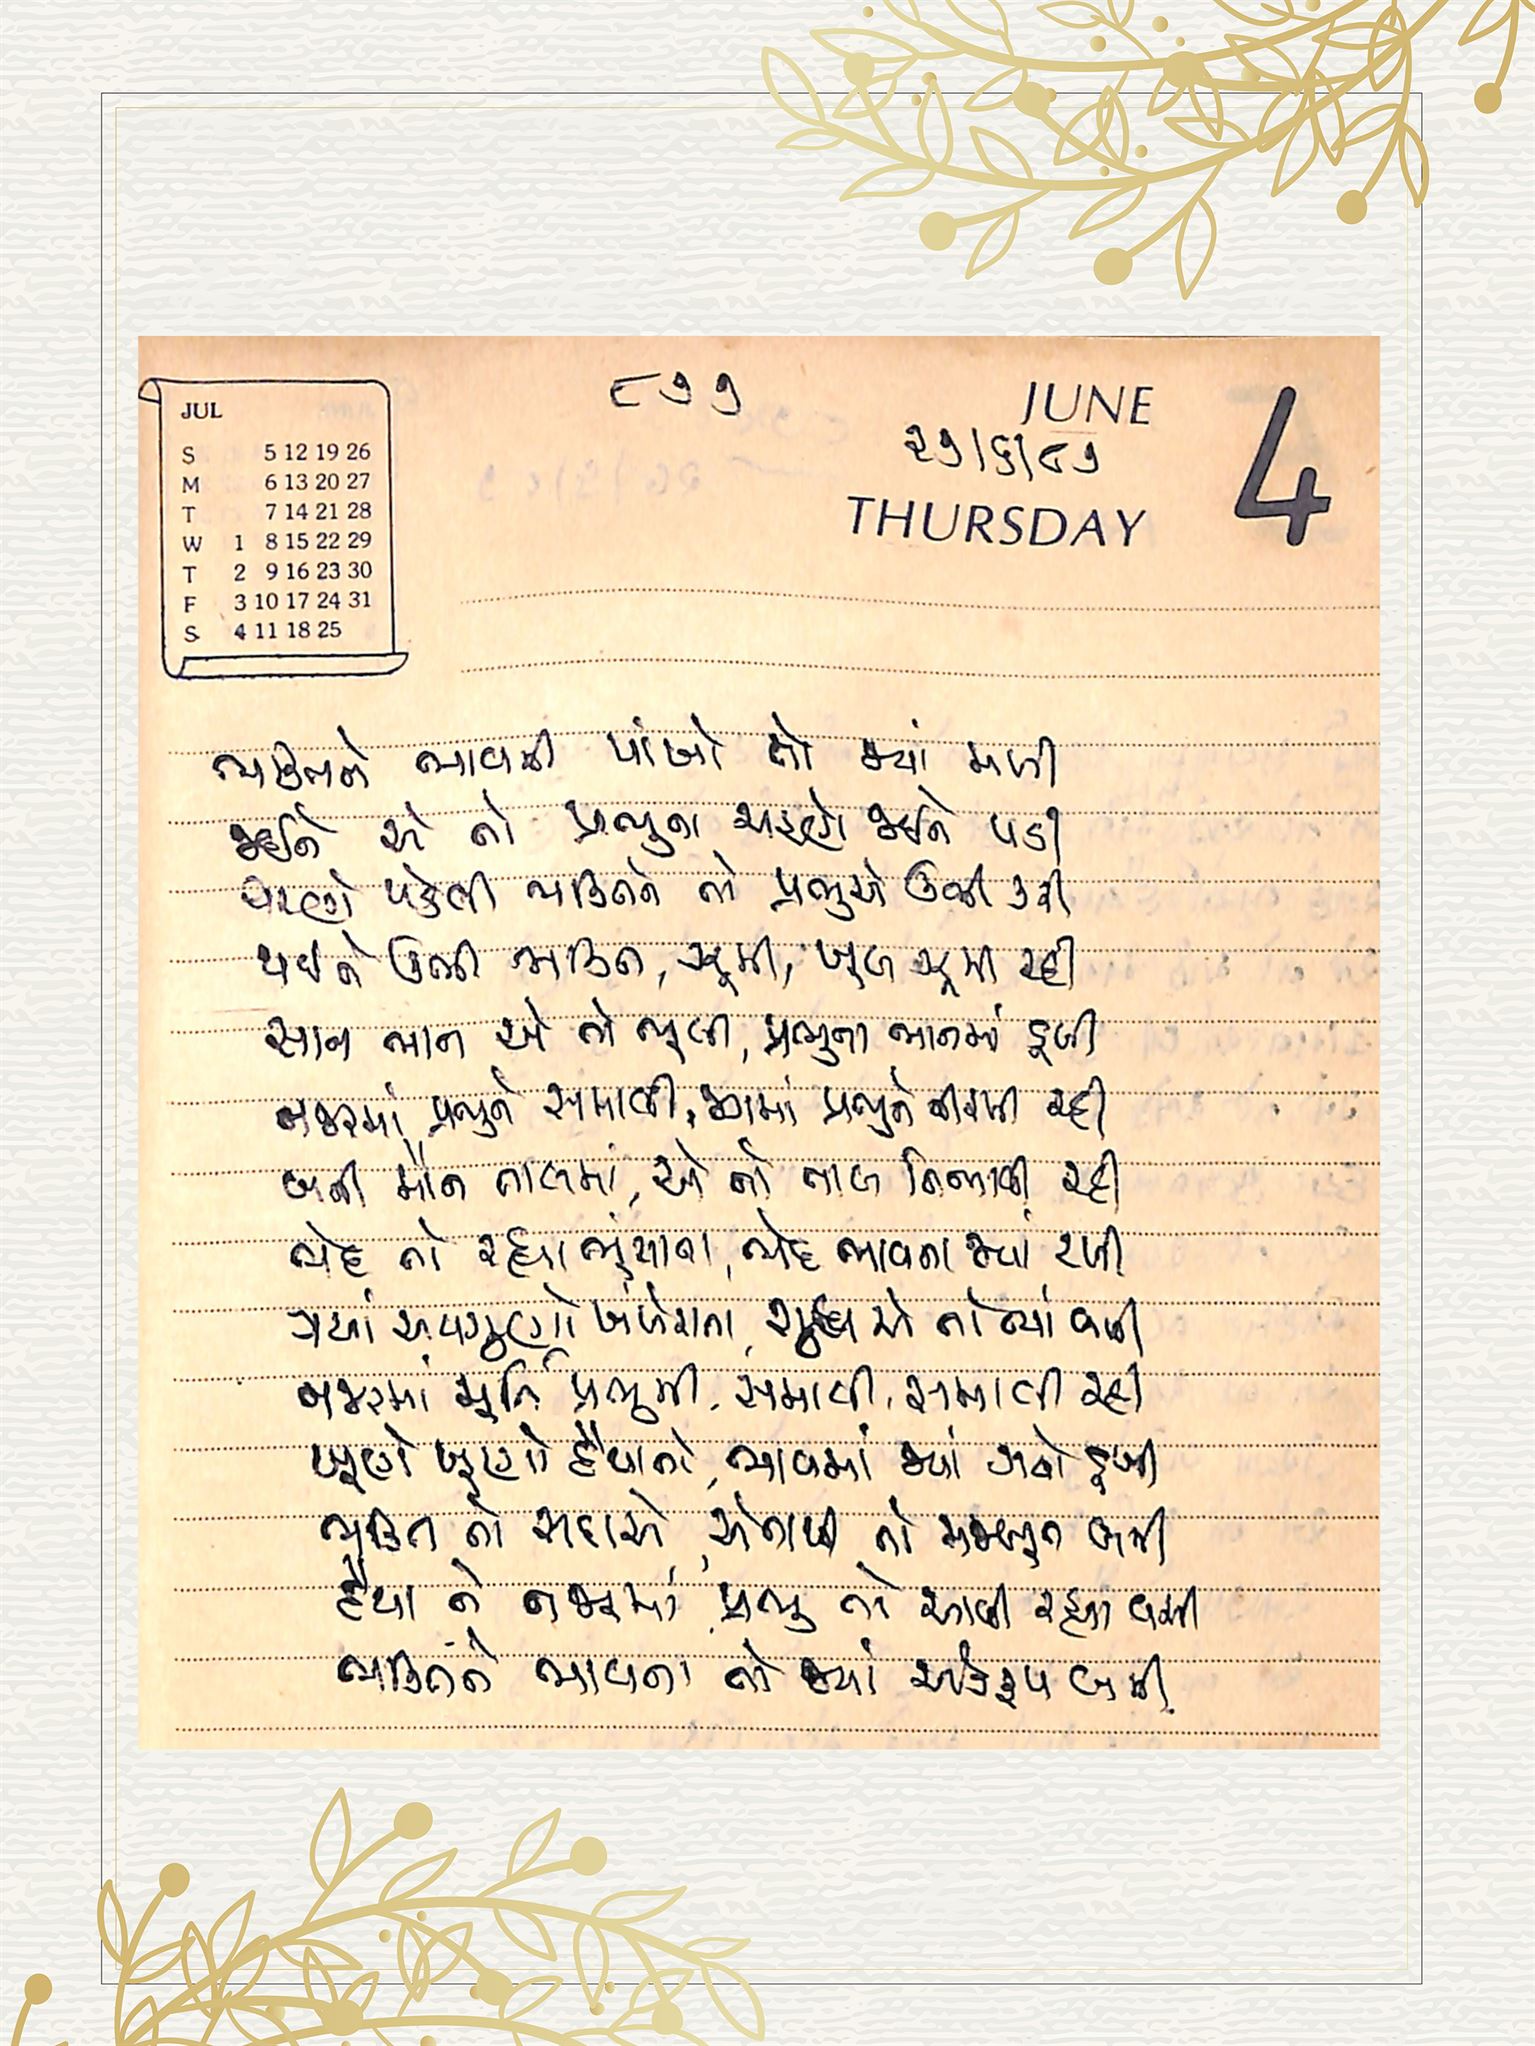 ૮૭૭
JUNE
૨૭/૬/૮૭
THURSDAY
4
JUL
S 5 12 19 26
M 6 13 20 27
T 7 14 21 28
W 1 8 15 22 29
T 2 9 16 23 30
F 3 10 17 24 31
S 4 11 18 25
ભક્તિને ભાવની પાંખો તો જ્યાં મળી
જઈને એ તો પ્રભુના ચરણે જઈને પડી
ચરણે પડેલી ભક્તિને તો પ્રભુએ ઊભી કરી
થઈને ઊભી ભક્તિ, ઝૂમી, ખૂબ ઝૂમી રહી
સાન ભાન એ તો ભૂલી, પ્રભુના ભાનમાં ડૂબી
નજરમાં પ્રભુને સમાવી, જગમાં પ્રભુને નીરખી રહી
બની મૌન તાલમાં, એ તો તાલ મિલાવી રહી
ભેદ તો રહ્યા ભુંસાતા, ભેદ ભાવના જ્યાં રળી
ગયાં અવગુણો ખંખેરાતા, શુદ્ધ એ તો ત્યાં બની
નજરમાં મૂર્તિ પ્રભુની, સમાવી, સમાવી રહી
ખૂણે ખૂણો હૈયાનો, ભાવમાં જ્યાં ગયો ડૂબી
ભક્તિ તો સદાએ, એનાથી તો મજબૂત બની
હૈયા ને નજરમાં, પ્રભુ તો આવી રહ્યા વસી
ભક્તિને ભાવના તો જ્યાં એકરૂપ બની